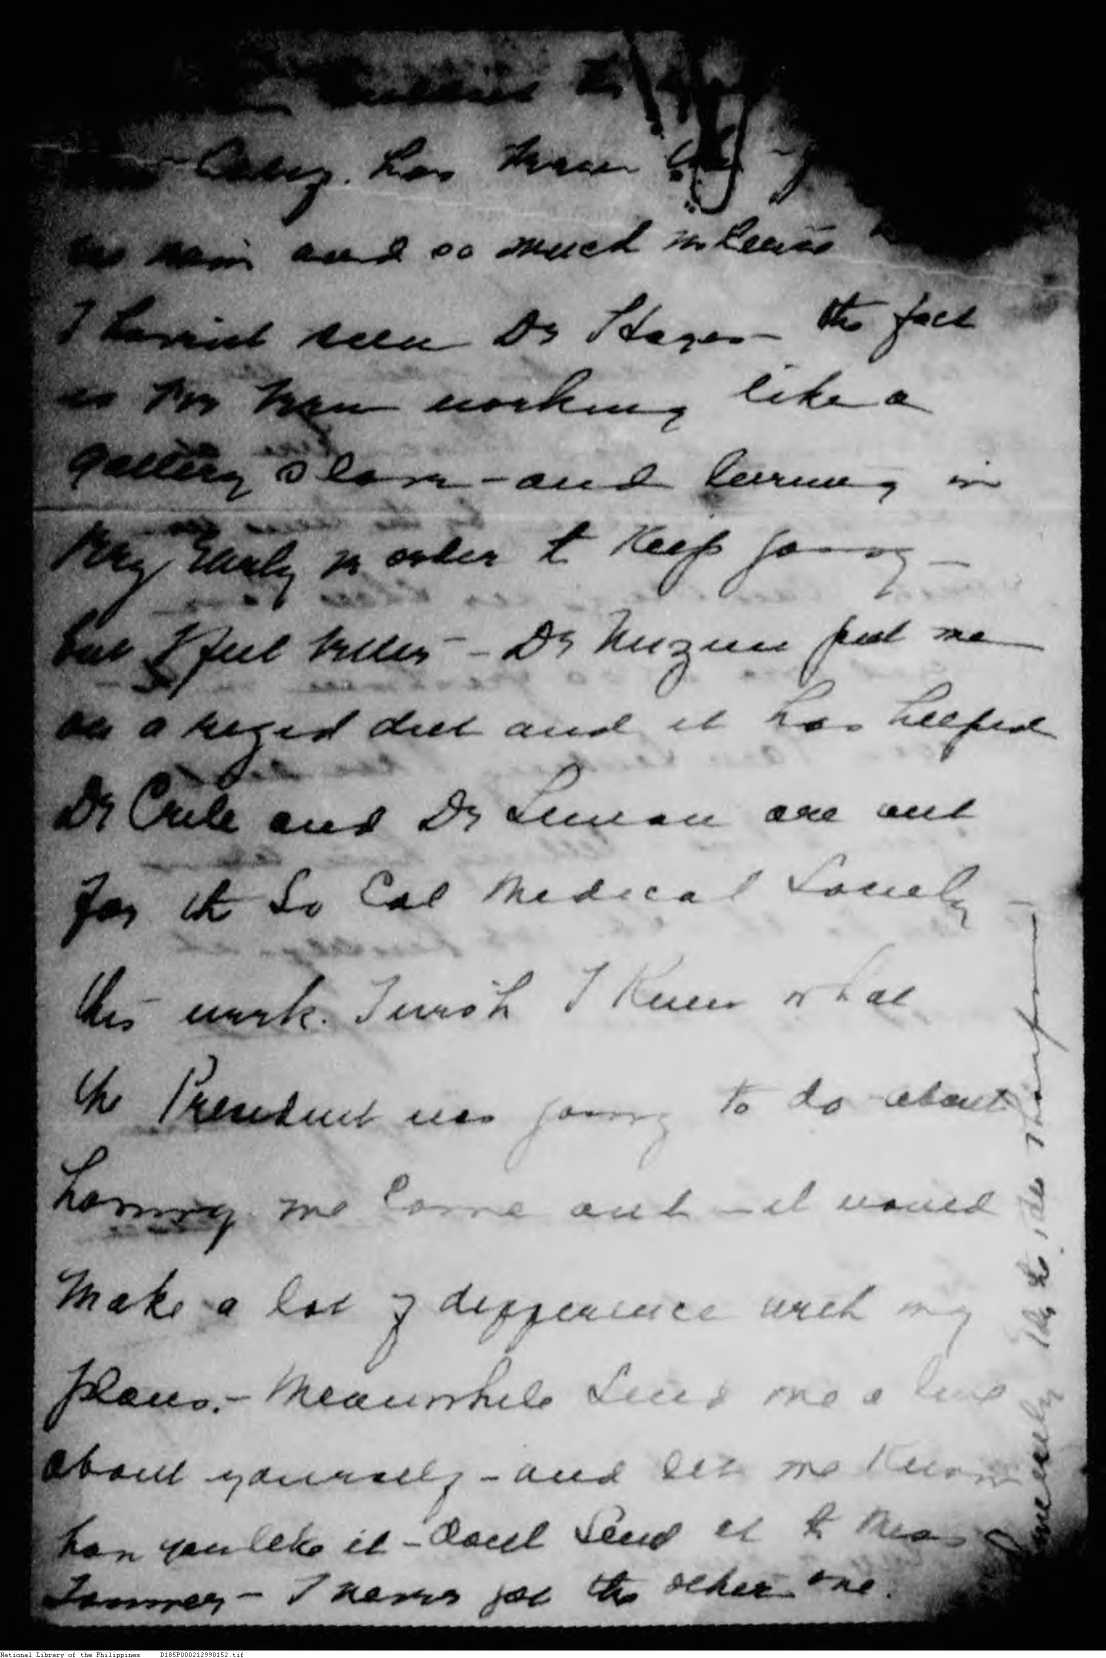 has been
and so much
I havent seen Dr Hayes – the fact
is Ive been working like a
galley slave – and turning in
very early in order to keep going –
but I feel better – Dr Nuzum put me
on a rigid diet and it has helped
Dr Crile and Dr Leman are out
for the So Cal Medical Society –
this week. I wish I knew what
the President was going to do about
having me come out – it would
make a lot of difference with my
plans. – Meanwhile send me a line
about yourself – and let me know
how you like it – Dont send it to Miss
– I never got the other one.
Sincerely
National Library of the Philippines D185P000212990152.tif